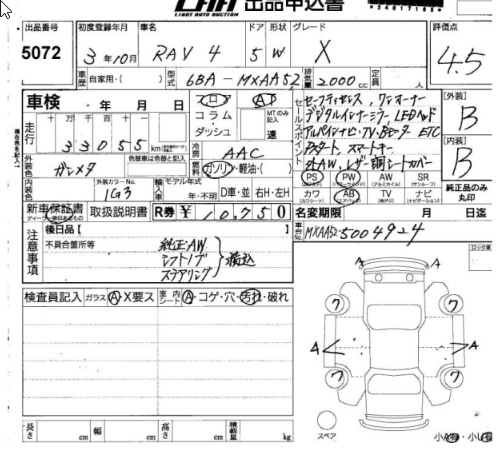 LIGHT AUTO AUCTION 出品申込書
出品番号 初度登録年月 車名 ドア 形状 グレード 評価点
5072 3年10月 RAV4 5 W X 4.5
車歴 自家用・( ) 型式 6BA-MXAA52 排気量 2000cc 定員 人
車検 ・ 年 月 日
フロア コラム ダッシュ AT MTのみ記入 速
セールスポイント
セーフティセンス, ワンオーナー
デジタルインナーミラー LEDヘッド
アルパインナビ・TV・Bモニター ETC
Pスタート, スマートキー
社外AW, レザー調シートカバー
[外装] B
[内装] B
走行 十万千百十一
33055 km
冷房 AAC
燃料 ガソリン・軽油・( )
外装色 ガンメタ
色替車は色替と記入
内装色
外装カラーNo. 1G3
輸入車 モデル年式 年・不明 D車・並 右H・左H
PS PW AW SR
カワ AB TV ナビ
純正品のみ丸印
新車保証書 取扱説明書 R券 ¥10,750
名変期限 月 日迄
車台No. MXAA52-5004924
注意事項
後日品[ ]
不具合箇所等
純正AW
シフトノブ 積込
ステアリング
ロック車
検査員記入 ガラス A・X要ス 車内シート A・コゲ・穴・汚れ・破れ
A A
ワ ワ
A A
ワ ワ
スペア
長さ cm 幅 cm 高さ cm 積載量 kg
小A・小U